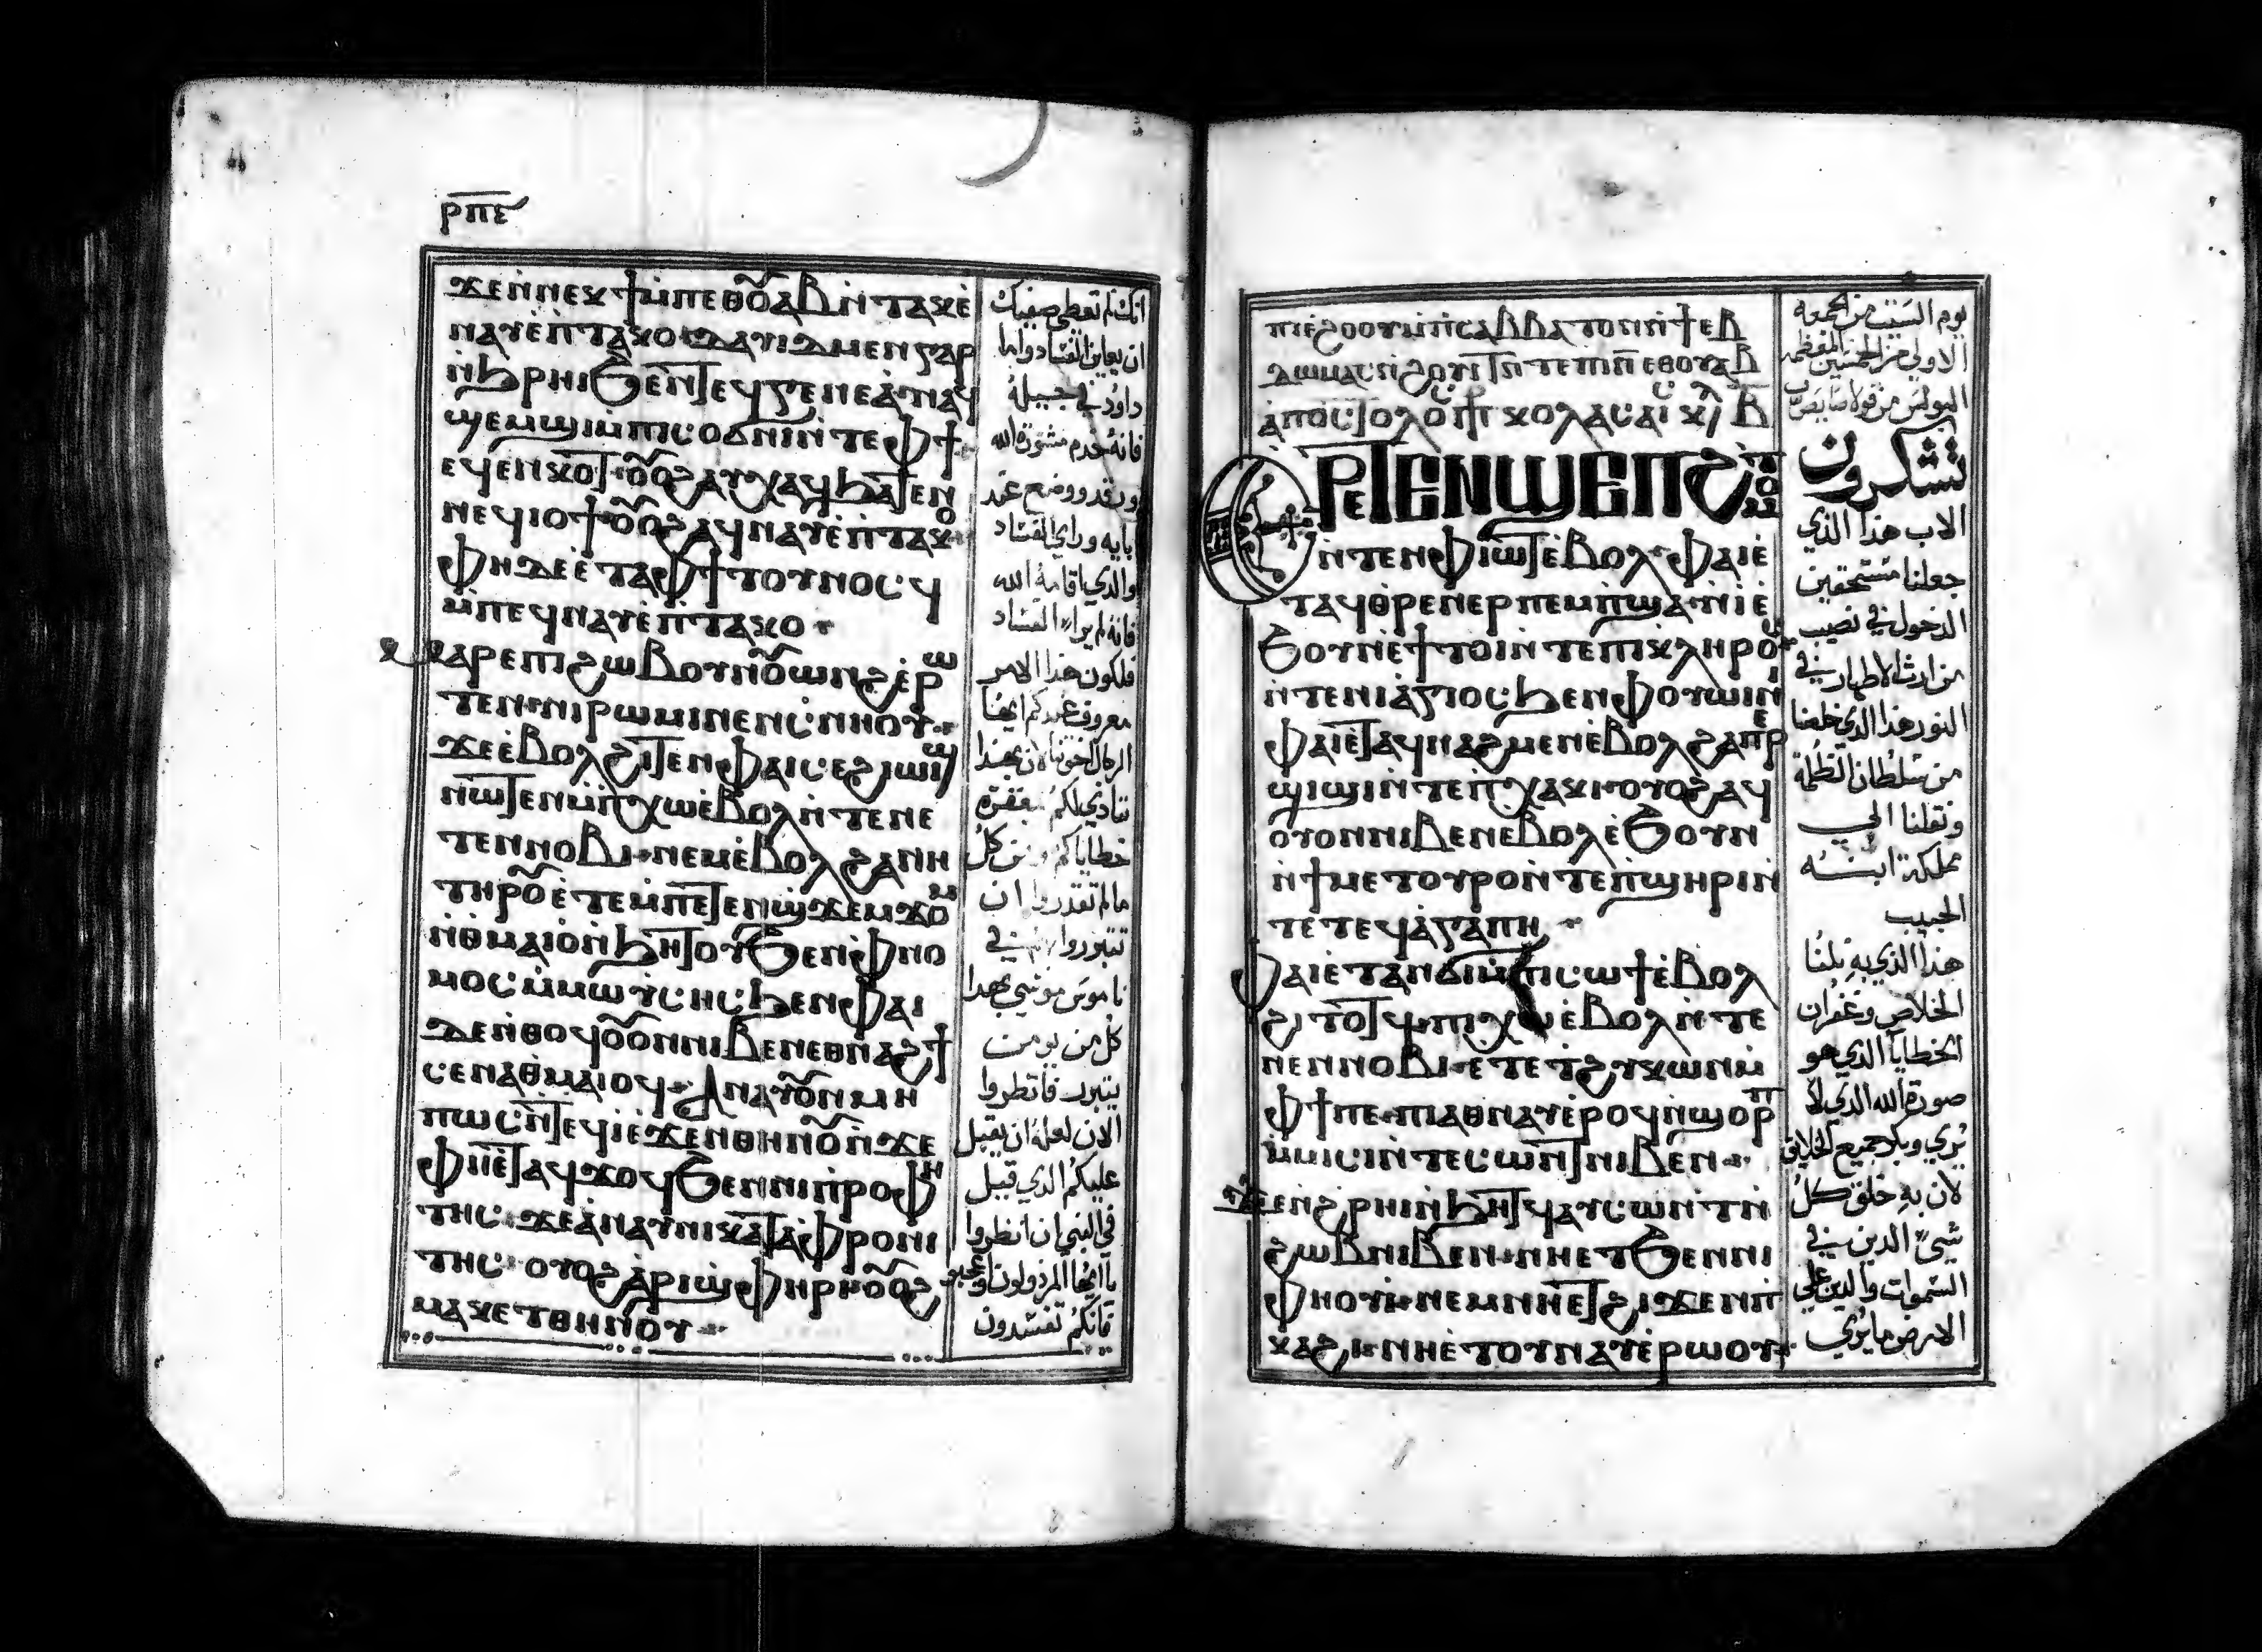 ⲣⲡⲉ
ϫⲉ ⲛ̀ⲛⲉⲕϯ ⲙ̀ⲡⲉⲑⲟⲩⲁⲃ ⲛ̀ⲧⲁⲕ ⲉ̀
ⲛⲁⲩ ⲉ̀ⲡⲧⲁⲕⲟ ⲇⲁⲩⲓⲇ ⲙⲉⲛ ⲅⲁⲣ
ⲛ̀ϩⲣⲏⲓ ϧⲉⲛ ⲧⲉϥⲅⲉⲛⲉⲁ̀ ⲛⲁϥ
ϣⲉⲙϣⲓ ⲙ̀ⲡⲓⲥⲟϭⲛⲓ ⲛ̀ⲧⲉ ⲫϯ
ⲉϥⲉⲛⲕⲟⲧ ⲟⲩⲟϩ ⲁⲩⲭⲁϥ ϧⲁⲧⲉⲛ
ⲛⲉϥⲓⲟϯ ⲟⲩⲟϩ ⲁϥⲛⲁⲩ ⲉ̀ⲡⲧⲁⲕⲟ
ⲫⲏ ⲇⲉ ⲉ̀ⲧⲁ ⲫϯ ⲧⲟⲩⲛⲟⲥϥ
ⲙ̀ⲡⲉϥⲛⲁⲩ ⲉ̀ⲡⲧⲁⲕⲟ
ⲙⲁⲣⲉ ⲡⲓϩⲱⲃ ⲟⲩⲛ ⲟⲩⲱⲛϩ ⲉ̀ⲣⲱ
ⲧⲉⲛ ⲛⲓⲣⲱⲙⲓ ⲛⲉⲛⲥⲛⲏⲟⲩ
ϫⲉ ⲉ̀ⲃⲟⲗ ϩⲓⲧⲉⲛ ⲫⲁⲓ ⲥⲉϩⲓⲱⲓϣ
ⲛⲱⲧⲉⲛ ⲙ̀ⲡⲭⲱ ⲉ̀ⲃⲟⲗ ⲛ̀ⲧⲉ ⲛⲉ
ⲧⲉⲛⲛⲟⲃⲓ ⲛⲉⲙ ⲉ̀ⲃⲟⲗ ϩⲁ ⲛⲏ
ⲧⲏⲣⲟⲩ ⲉ̀ⲧⲉ ⲙ̀ⲡⲉⲧⲉⲛϣϫⲉⲙϫⲟⲙ
ⲛ̀ⲑⲙⲁⲓⲟ ⲛ̀ϧⲏⲧⲟⲩ ϧⲉⲛ ⲫⲛⲟ
ⲙⲟⲥ ⲙ̀ⲙⲱⲩ̀ⲥⲏⲥ ϧⲉⲛ ⲫⲁⲓ
ⲇⲉ ⲛ̀ⲑⲟϥ ⲟⲩⲟⲛ ⲛⲓⲃⲉⲛ ⲉⲑⲛⲁϩϯ
ⲥⲉⲛⲁⲑⲙⲁⲓⲟϥ ⲁⲛⲁⲩ ⲟⲩⲛ ⲙⲏ
ⲡⲱⲥ ⲛ̀ⲧⲉϥⲓ̀ ⲉ̀ϫⲉⲛ ⲑⲏⲛⲟⲩ ⲛ̀ϫⲉ
ⲫⲏ ⲉ̀ⲧⲁϥϫⲟϥ ϧⲉⲛ ⲛⲓⲡⲣⲟⲫⲏ
ⲧⲏⲥ ϫⲉ ⲁ̀ⲛⲁⲩ ⲛⲓⲕⲁⲧⲁⲫⲣⲟⲛⲓ
ⲧⲏⲥ ⲟⲩⲟϩ ⲁ̀ⲣⲓϣ̀ⲫⲏⲣⲓ ⲟⲩⲟϩ
ⲙⲁⲕⲉⲧⲑⲏⲛⲟⲩ
انك لم تعطي صفيك
ان يعاين الفساد واما
داود في جيله
فانه خدم مشورة الله
ورقد ووضع عند
ابايه وراي الفساد
والذي اقامه الله
فانه لم يرا الفساد
فليكون هذا الامر
معروف عندكم ايها
الرجال اخوتنا لان بهذا
ننادي لكم بمغفرة
خطاياكم ومن كل
مالم تقدروا ان
تتبرروا به في
ناموس موسي بهدا
كل من يومن
يتبرر فانظروا
الان لعله ان يقبل
عليكم الذي قيل
في النبي ان انظروا
يا ايها المرذولون وتعجبو
فانكم تفسدون
ⲡⲓⲉ̀ϩⲟⲟⲩ ⲙ̀ⲡⲓⲥⲁⲃⲃⲁⲧⲟⲛ ⲛ̀ϯⲉⲃ
ⲇⲱⲙⲁⲥ ⲛ̀ϩⲟⲩⲓϯ ⲛ̀ⲧⲉ ⲡⲓⲛ̅ ⲉⲑⲟⲩⲁⲃ
ⲁ̀ⲡⲟⲥⲧⲟⲗⲟⲥ ⲡⲣⲟⲥ ⲕⲟⲗⲁⲥⲁⲓⲥ ⲕⲗ ⲃ
ⲉⲣⲉⲧⲉⲛϣⲉⲡϩⲙⲟⲧ
ⲛ̀ⲧⲉⲛ ⲫⲓⲱⲧ ⲉ̀ⲃⲟⲗ ⲫⲁⲓ ⲉ̀
ⲧⲁϥⲑⲣⲉⲛⲉⲣⲡⲉⲙⲡϣⲁ ⲛ̀ⲓ ⲉ̀
ϧⲟⲩⲛ ⲉ̀ϯⲧⲟⲓ ⲛ̀ⲧⲉ ⲡⲓⲕⲗⲏⲣⲟⲥ
ⲛ̀ⲧⲉ ⲛⲓⲁ̀ⲅⲓⲟⲥ ϧⲉⲛ ⲫⲟⲩⲱⲓⲛⲓ
ⲫⲁⲓ ⲉ̀ⲧⲁϥⲛⲁϩⲙⲉⲛ ⲉ̀ⲃⲟⲗ ϩⲁ ⲡⲉⲣ
ϣⲓϣⲓ ⲛ̀ⲧⲉ ⲡⲭⲁⲕⲓ ⲟⲩⲟϩ ⲁϥ
ⲟⲩⲟⲛⲛⲓⲃⲉⲛ ⲉⲃⲟⲗ ⲉ̀ϧⲟⲩⲛ
ⲛ̀ϯⲙⲉⲧⲟⲩⲣⲟ ⲛ̀ⲧⲉ ⲡϣⲏⲣⲓ ⲛ̀
ⲧⲉ ⲧⲉϥⲁ̀ⲅⲁⲡⲏ
ⲫⲁⲓ ⲉ̀ⲧⲁⲛϭⲓ ⲙ̀ⲡⲓⲥⲱϯ ⲉ̀ⲃⲟⲗ
ϩⲓⲧⲟⲧϥ ⲡⲓⲭⲱ ⲉ̀ⲃⲟⲗ ⲛ̀ⲧⲉ
ⲛⲉⲛⲛⲟⲃⲓ ⲉⲧⲉ ⲧϩⲩⲕⲱⲛ ⲙ̀
ⲫϯ ⲡⲉ ⲡⲓⲁⲑⲛⲁⲩ ⲉ̀ⲣⲟϥ ⲡ̀ϣⲟⲣⲡ
ⲙ̀ⲙⲓⲥⲓ ⲛ̀ⲧⲉ ⲥⲱⲛⲧ ⲛⲓⲃⲉⲛ
ϫⲉ ⲛ̀ϩⲣⲏⲓ ⲛ̀ϧⲏⲧϥ ⲁⲩⲥⲱⲛⲧ ⲛ̀
ϩⲱⲃ ⲛⲓⲃⲉⲛ ⲛⲏ ⲉⲧϧⲉⲛ ⲛⲓ
ⲫⲏⲟⲩⲓ ⲛⲉⲙ ⲛⲏ ⲉⲧϩⲓϫⲉⲛ ⲡ
ⲕⲁϩⲓ ⲛⲏ ⲉ̀ⲧⲟⲩⲛⲁⲩ ⲉ̀ⲣⲱⲟⲩ
يوم السبت من الجمعه
الاولي من الخمسين المعظمه
البولس من قولاسايص ب
تشكرون
الاب هذا الذي
جعلنا مستحقين
الدخول في نصيب
من ارث الاطهار في
النور هذا الذي خلصنا
من سلطان الظلمة
ونقلنا الي
مملكة ابنه
الحبيب
هذا الذي به نلنا
الخلاص وغفران
الخطايا الذي هو
صورة الله الذي لا
يري وبكر جميع الخلايق
لان به خلق كل
شي الدين في
السموات والدين علي
الارض ما يري